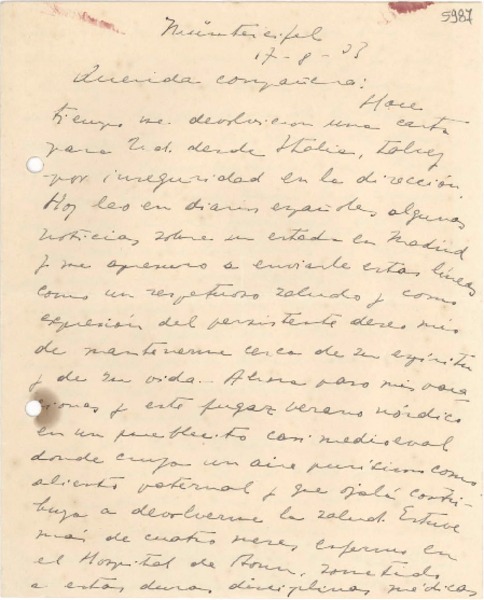 5987
Münstereifel
17-8-33
Querida compañera:
Hace
tiempo me devolvieron una carta
para Ud. desde Italia, talvez
por inseguridad en la dirección.
Hoy leo en diarios españoles algunas
noticias sobre su estada en Madrid
y me apresuro a enviarle estas líneas
como un respetuoso saludo y como
expresión del persistente deseo mío
de mantenerme cerca de su espíritu
y de su vida. Ahora paso mis vaca
ciones y este fugaz verano nórdico
en un pueblecito casi medioeval
donde cruza un aire purísimo como
aliento paternal y que ojalá contri-
buya a devolverme la salud. Estuve
más de cuatro meses enfermo en
el Hospital de Bonn, sometido
a estas duras disciplinas médicas